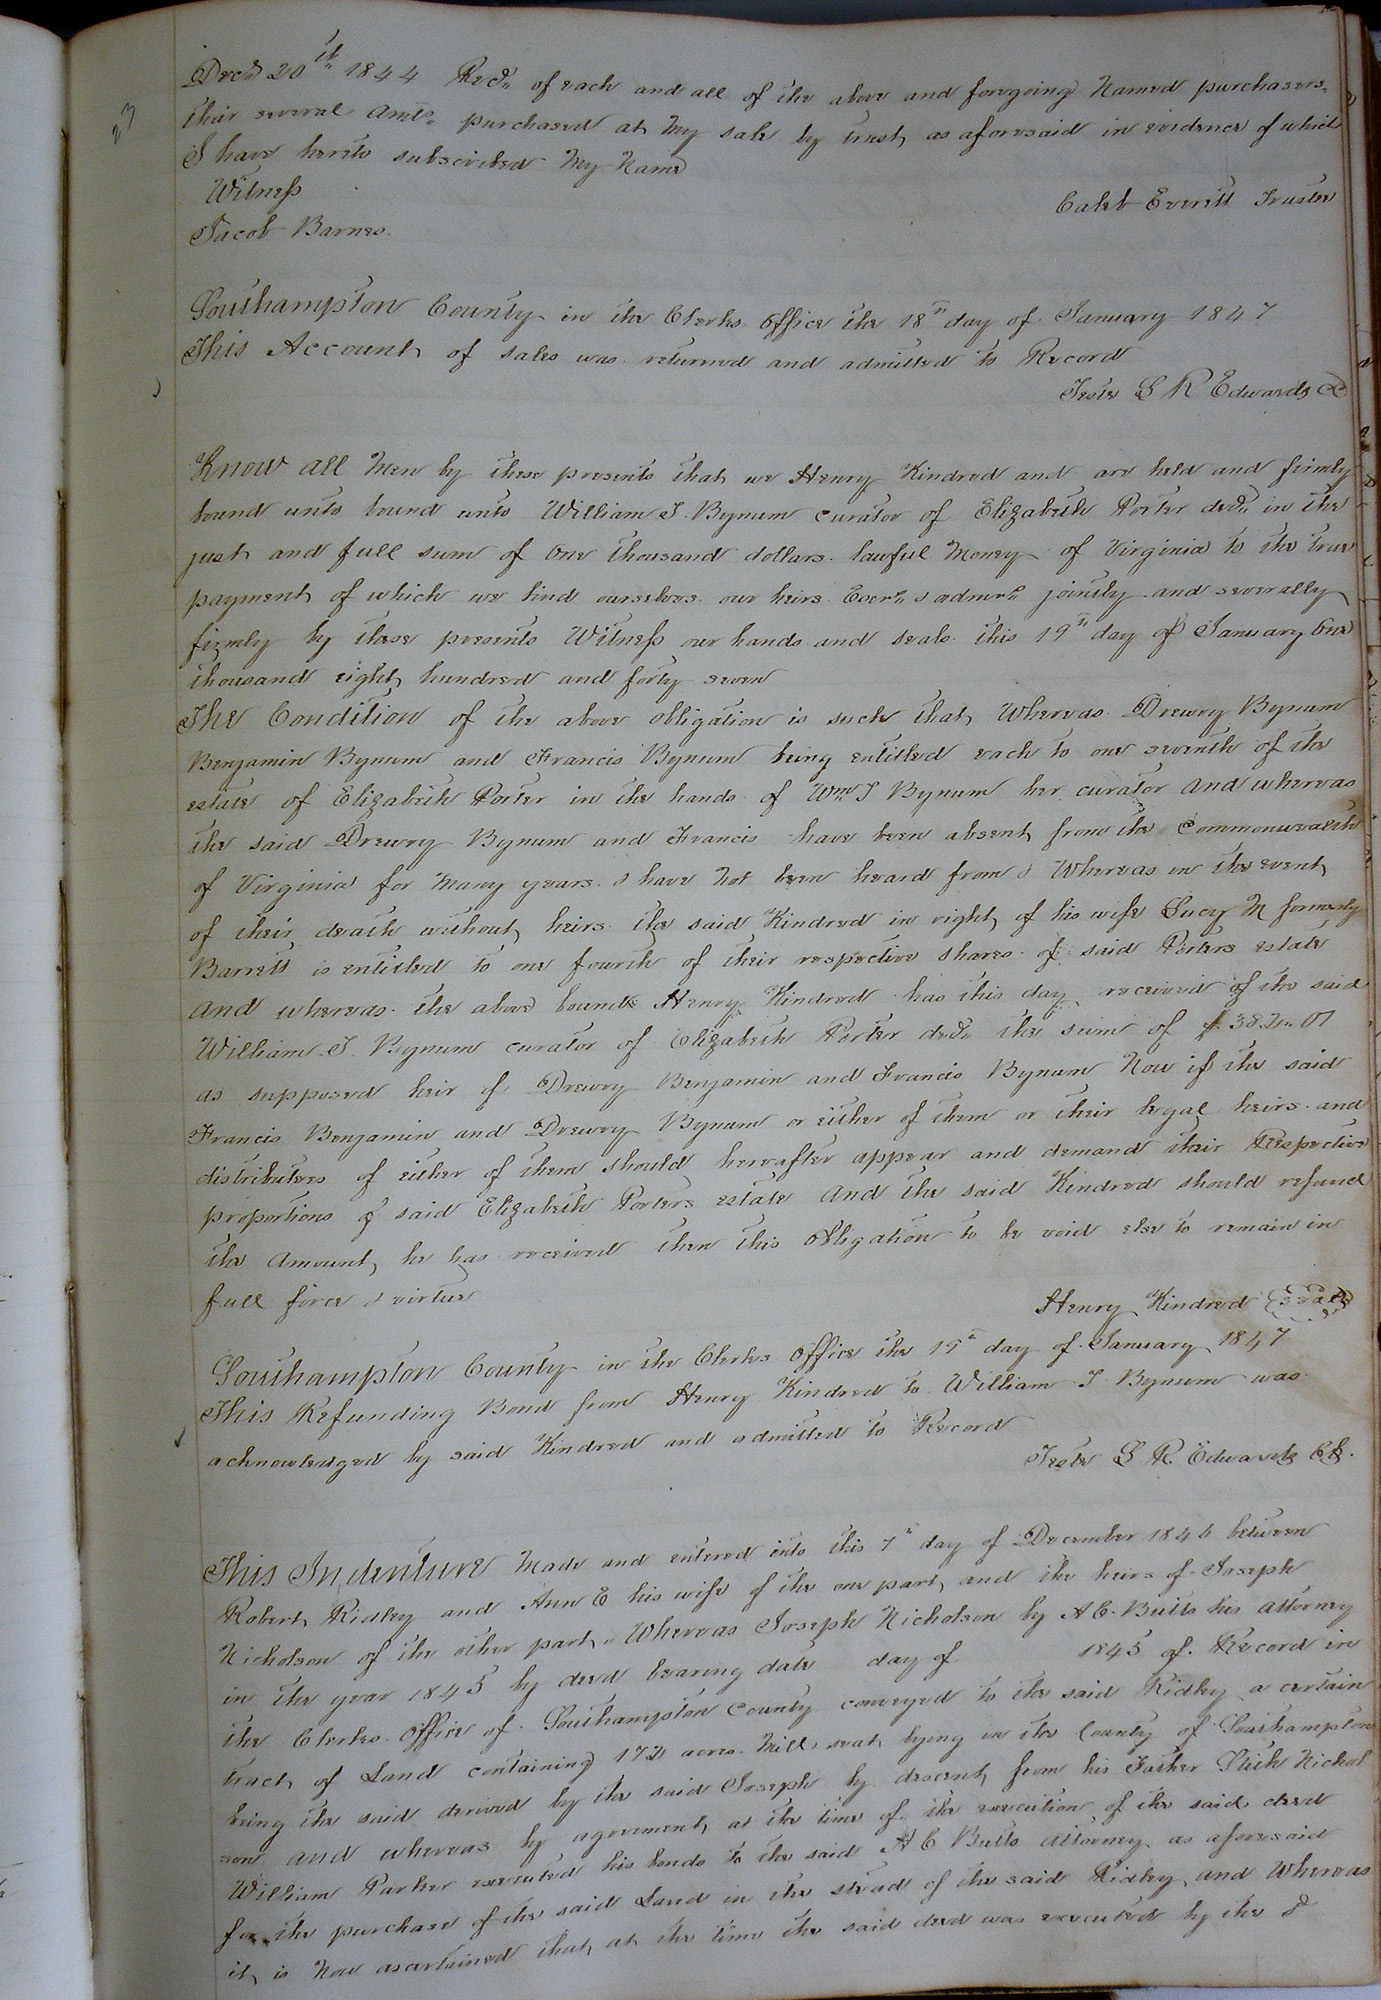 27
Decr 20th 1844 Recd of each and all of the above and foregoing Named purchasers
their several Amts purchased at My sale by trust as aforesaid in evidence of which
I have hereto subscribed My Name
Witness
Caleb Everitt Trustee
Jacob Barnes
Southampton County in the Clerks Office the 18th day of January 1847
This Account of sales was returned and admitted to Record
Teste L R Edwards
Know all Men by these presents that we Henry Kindred and are held and firmly
bound unto bound unto William J. Bynum curator of Elizabeth Porter decd in the
just and full sum of One thousand dollars lawful Money of Virginia to the true
payment of which we bind ourselves our heirs Exors & admrs jointly and severally
firmly by these presents Witness our hands and seals this 19th day of January One
thousand eight hundred and forty seven
The Condition of the above obligation is such that Whereas Drewry Bynum
Benjamin Bynum and Francis Bynum being entitled each to one seventh of the
estate of Elizabeth Porter in the hands of Wm J Bynum her curator and whereas
the said Drewry Bynum and Francis have been absent from the Commonwealth
of Virginia for Many years & have Not been heard from & Whereas in the event
of their death without heirs the said Kindred in right of his wife Lucy M formerly
Barrett is entitled to one fourth of their respective shares of said Porters estate
And whereas the above bound Henry Kindred has this day received of the said
William J. Bynum curator of Elizabeth Porter decd the sum of
as supposed heir of Drewry Benjamin and Francis Bynum Now if the said
Francis Benjamin and Drewry Bynum or either of them or their legal heirs and
distributees of either of them should hereafter appear and demand their Respective
proportions of said Elizabeth Porters estate And the said Kindred should refund
the Amount he has received then this Obligation to be void else to remain in
full force & virtue
Henry Kindred Seal
Southampton County in the Clerks Office the 19th day of January 1847
This Refunding Bond from Henry Kindred to William J Bynum was
acknowledged by said Kindred and admitted to Record
Teste L R. Edwards Clk.
This Indenture Made and entered into this 7th day of December 1846 between
Robert Ridley and Ann E his wife of the one part and the heirs of Joseph
Nicholson of the other part Whereas Joseph Nicholson by A C. Butts his attorney
in the year 1845 by deed bearing date day of 1845 of Record in
the Clerks Office of Southampton County conveyed to the said Ridley a certain
tract of Land containing 172 acres Mill seat lying in the County of Southampton
being the said derived by the said Joseph by descent from his Father Stith Nichol
son and whereas by agreement at the time of the execution of the said deed
William Parker executed his bonds to the said A C Butts attorney as aforesaid
for the purchase of the said Land in the stead of the said Ridley and Whereas
it is Now ascertained that at the time the said deed was executed by the